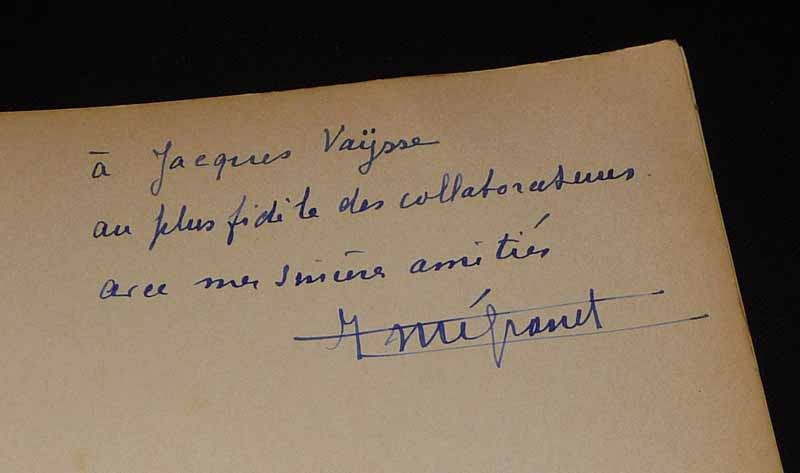 à Jacques Vaÿsse
au plus fidèle des collaborateurs
avec mes sincères amitiés